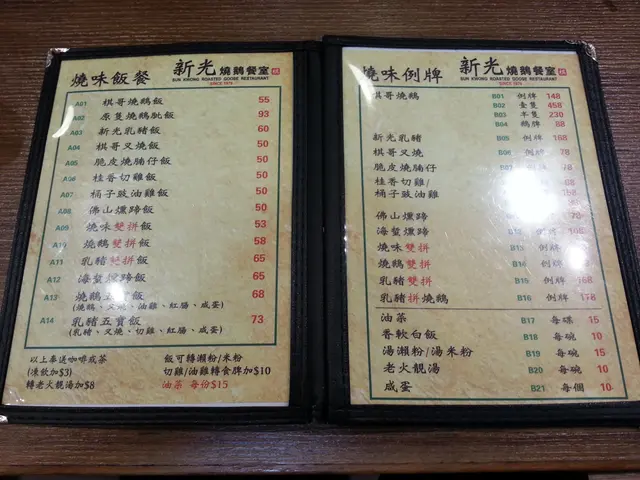 燒味飯餐 新光燒鵝餐室
SUN KWONG ROASTED GOOSE RESTAURANT
SINCE 1979
A01 棋哥燒鵝飯 55
A02 原隻燒鵝髀飯 93
A03 新光乳豬飯 60
A04 棋哥叉燒飯 50
A05 脆皮燒腩仔飯 50
A06 桂香切雞飯 50
A07 桶子豉油雞飯 50
A08 佛山燻蹄飯 50
A09 燒味雙拼飯 53
A10 燒鵝雙拼飯 58
A11 乳豬雙拼飯 65
A12 海蜇燻蹄飯 65
A13 燒鵝五寶飯 68
(燒鵝、叉、油雞、紅腸、咸蛋)
A14 乳豬五寶飯 73
(乳豬、叉、切雞、紅腸、咸蛋)
以上奉送咖啡或茶
(凍飲加$3)
轉老火靚湯加$8
飯可轉瀨粉/米粉
切雞/油雞轉食髀加$10
油菜 每份$15
燒味例牌 新光燒鵝餐室
SUN KWONG ROASTED GOOSE RESTAURANT
SINCE 1979
棋哥燒鵝 B01 例牌 148
B02 壹隻 458
B03 半隻 230
B04 鵝髀 88
新光乳豬 B05 例牌 168
棋哥叉燒 B06 例牌 78
脆皮燒腩仔 例牌 78
桂香切雞/ 68
桶子豉油雞
佛山燻蹄 78
海蜇燻蹄
燒味雙拼 B13 例牌
燒鵝雙拼 B14 例牌
乳豬雙拼 B15 例牌 168
乳豬拼燒鵝 B16 例牌 178
油菜 B17 每碟 15
香軟白飯 B18 每碗 10
湯瀨粉/湯米粉 B19 每碗 15
老火靚湯 B20 每碗 10
咸蛋 B21 每個 10